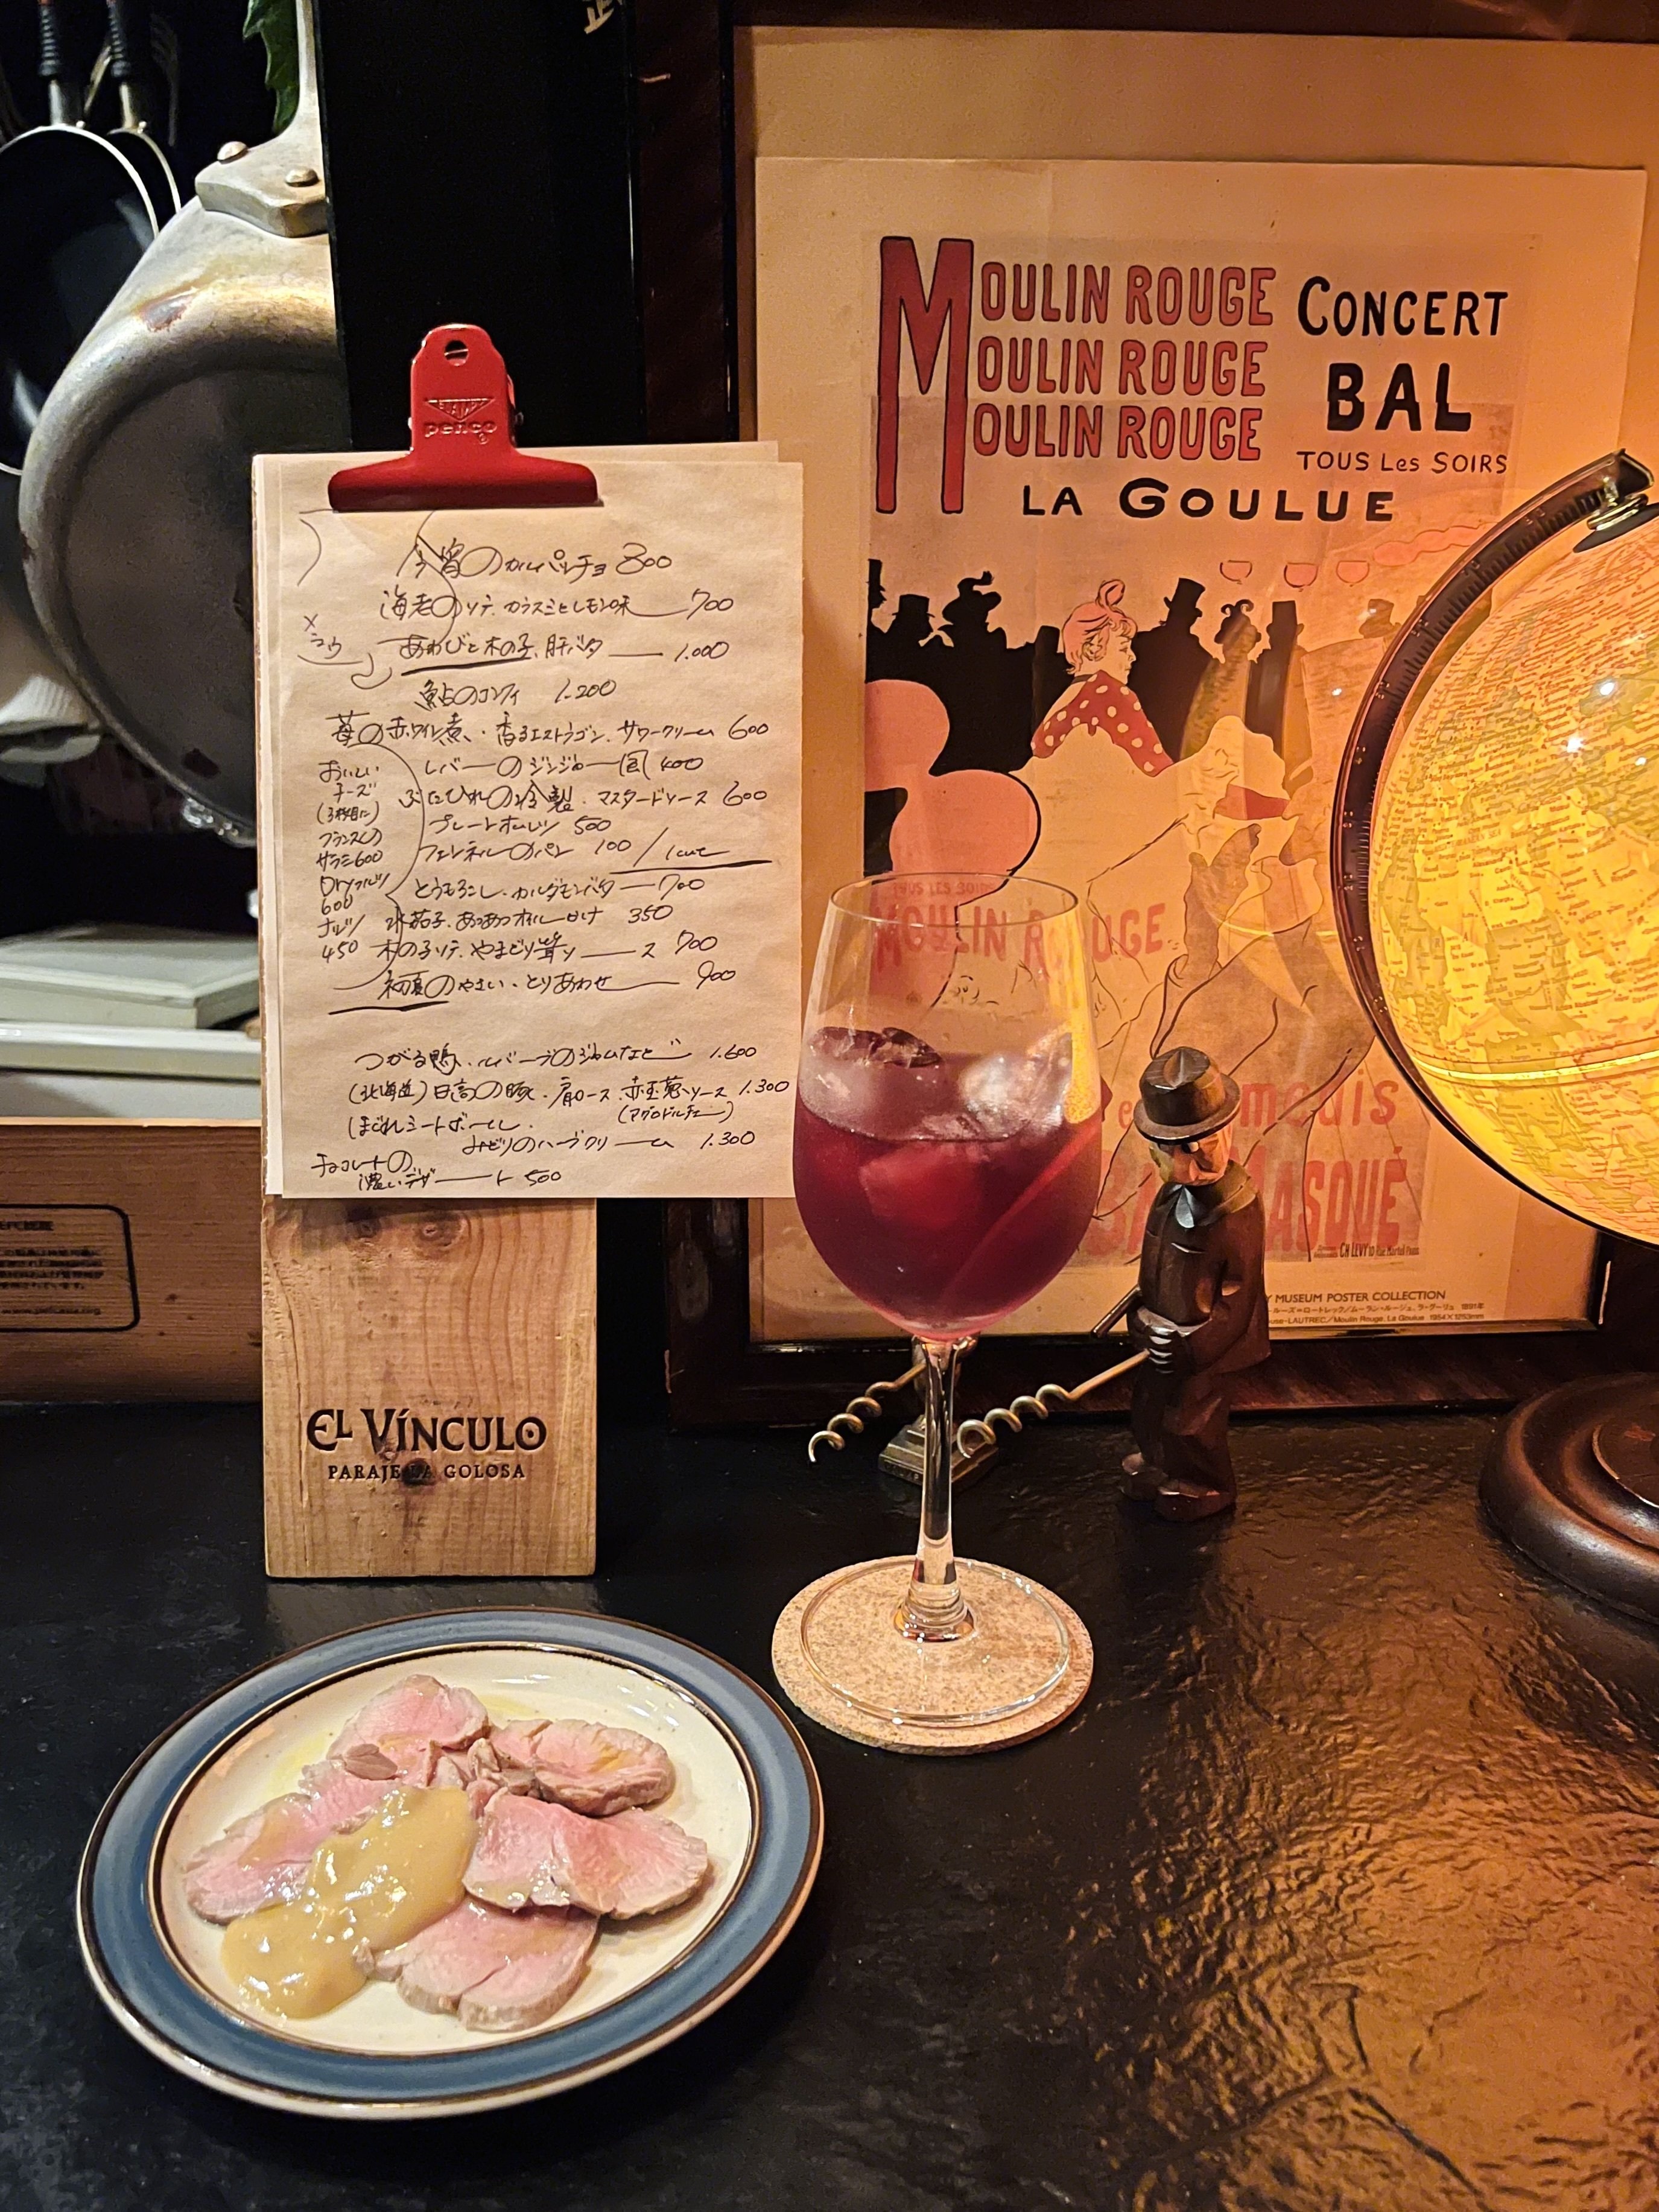 penco
今宵のカルパッチョ 800
海老のソテ、カラスミとレモン味 700
あわびと木の子、肝バタ 1.000
鮎のコンフィ 1.200
苺の赤ワイン煮、香るエストラゴン、サワークリーム 600
レバーのジンジャー風 400
ぶたひれの冷製、マスタードソース 600
プレーンオムレツ 500
フェンネルのパン 100 / 1cut
とうもろこし、カルダモンバタ 700
水茄子、あつあつオイルかけ 350
木の子ソテ、やまどり茸ソース 700
初夏のやさい、とりあわせ 900
おいしい
チーズ
(3枚目に)
フランスの
サラミ600
Dryフルーツ
600
ナッツ
450
つがる鴨、ルバーブのジャムなど 1.600
(北海道)日高の豚、肩ロース、赤玉葱ソース 1.300
(アグロドルチェ)
ほぐれミートボール、
みどりのハーブクリーム 1.300
チョコレートの
濃いデザート 500
EL VÍNCULO
PARAJE LA GOLOSA
MOULIN ROUGE CONCERT
MOULIN ROUGE BAL
MOULIN ROUGE TOUS LES SOIRS
LA GOULUE
TOUS LES SOIRS
MOULIN ROUGE
MASQUÉ
CH LEVY
MUSEUM POSTER COLLECTION
ルーズ=ロートレック/ムーラン・ルージュ、ラ・グーリュ 1891年
LAUTREC/Moulin Rouge, La Goulue